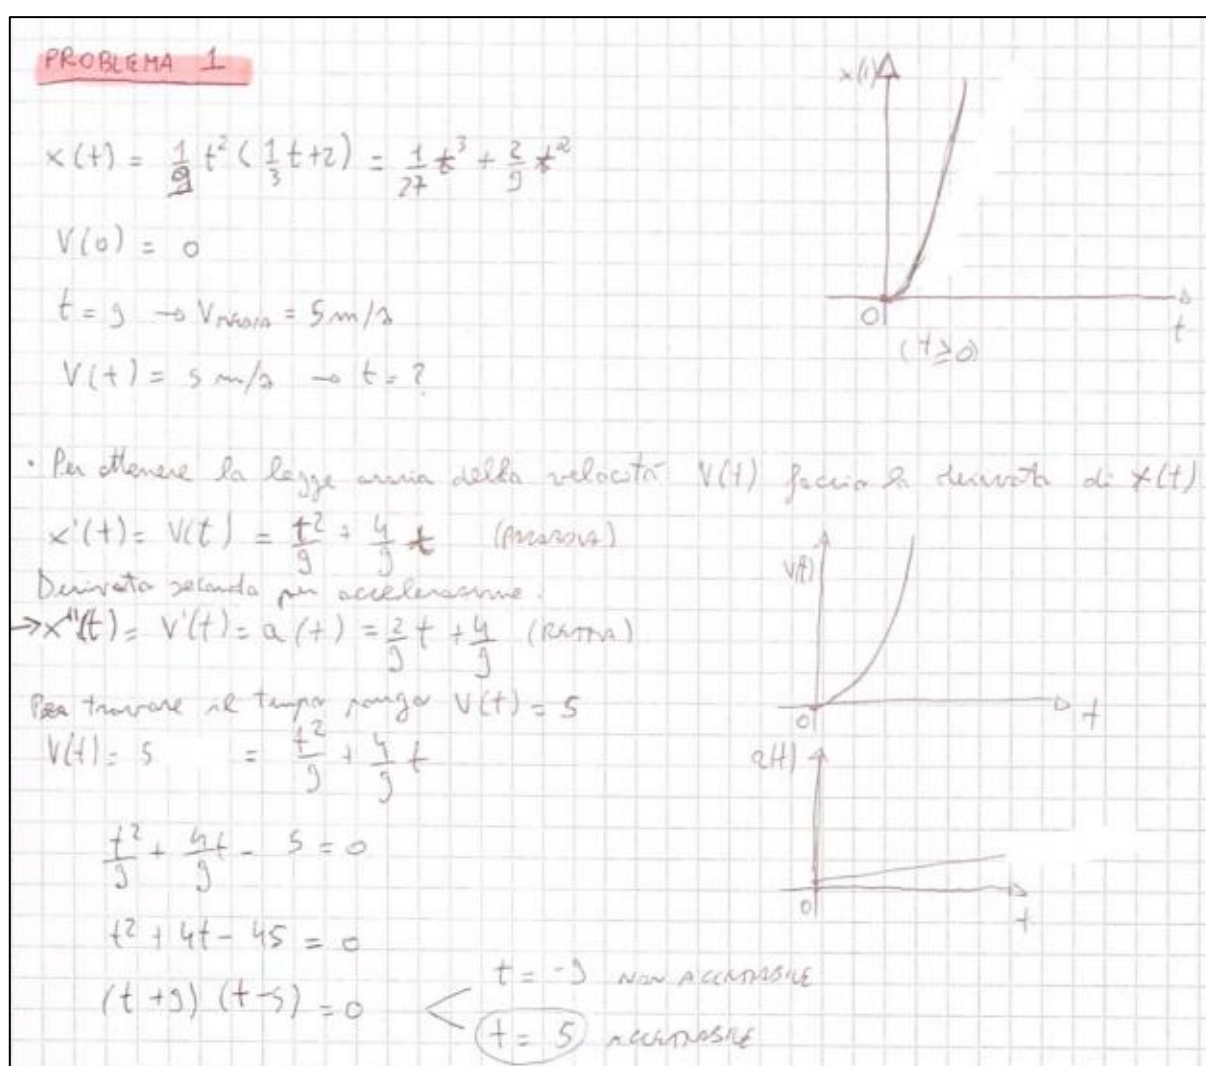 PROBLEMA 1
x(t) = 1/9 t² (1/3 t+2) = 1/27 t³ + 2/9 t²
V(0) = 0
t = 9 → VMEDIA = 5 m/s
V(t) = 5 m/s → t = ?
x(t)
0
t
(t ≥ 0)
• Per ottenere la legge oraria della velocità V(t) faccio la derivata di x(t)
x'(t) = V(t) = t²/9 + 4/9 t (PARABOLA)
Derivata seconda per accelerazione.
→ x''(t) = V'(t) = a(t) = 2/9 t + 4/9 (RETTA)
Per trovare il tempo pongo V(t) = 5
V(t) = 5 = t²/9 + 4/9 t
t²/9 + 4/9 t - 5 = 0
t² + 4t - 45 = 0
(t+9) (t-5) = 0
t = -9 NON ACCETTABILE
t = 5 ACCETTABILE
V(t)
0
t
a(t)
0
t